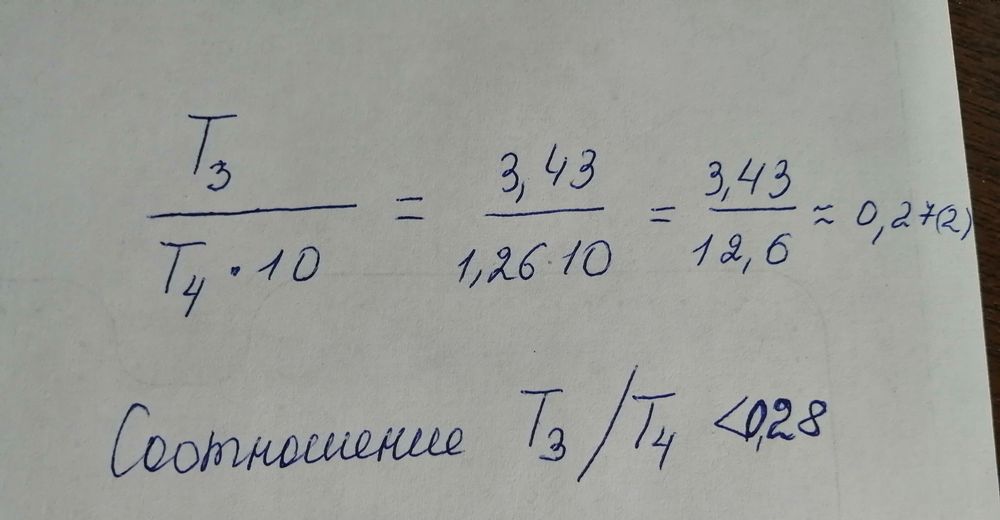 T₃ / T₄ · 10 = 3,43 / 1,26·10 = 3,43 / 12,6 ≈ 0,27(2)
Соотношение T₃/T₄ <0,28